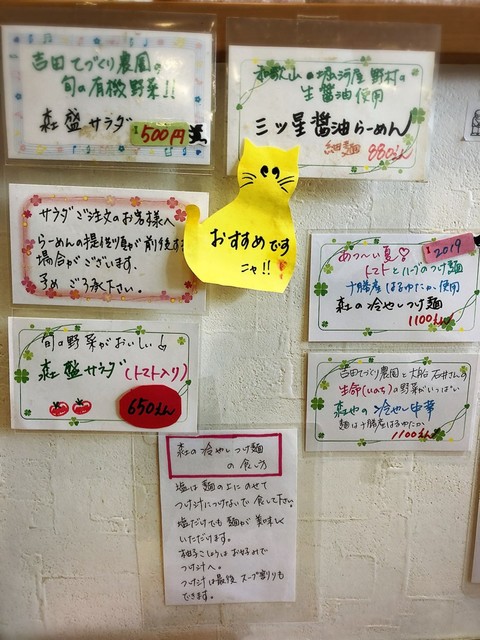 吉田てづくり農園の
旬の有機野菜!!
森盛サラダ
¥500円
和歌山の堀河屋野村の
生醤油使用
三ツ星醤油らーめん
細麺 880えん
おすすめです
ニャ!!
サラダご注文のお客様へ
らーめんの提供順が前後す
場合がございます。
予めご了承下さい。
¥2019
あつ〜い夏♡
トマトとハーブのつけ麺
十勝産はるゆたか使用
森の冷やしつけ麺
1100えん
旬の野菜がおいしい
森盛サラダ(トマト入り)
650えん
吉田てづくり農園と大船石井さんの
生命(いのち)の野菜がいっぱい
森やの冷やし中華
麺は十勝産はるゆたか
1100えん
森の冷やしつけ麺
の食し方
塩は麺の上にのせて
つけ汁につけないで食して下さい。
塩だけでも麺が美味しく
いただけます。
柚子こしょうはお好みで
つけ汁へ。
つけ汁は最後スープ割りも
できます。